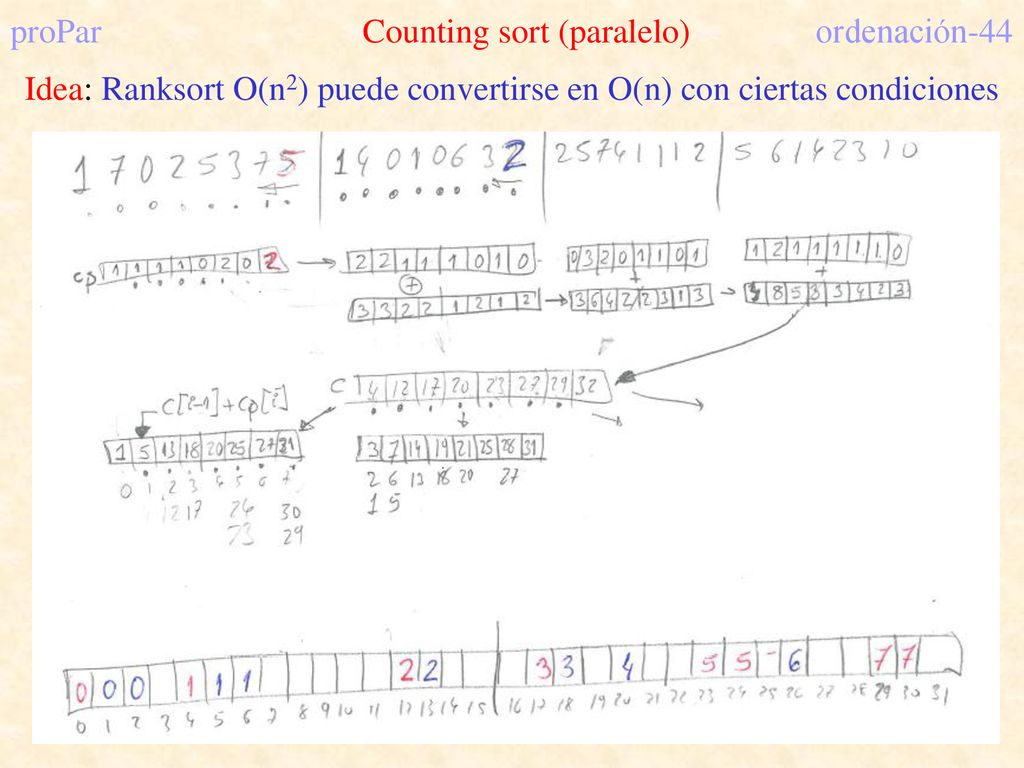 proPar Counting sort (paralelo) ordenación-44
Idea: Ranksort O(n²) puede convertirse en O(n) con ciertas condiciones
1 7 0 2 5 3 7 5 | 1 4 0 1 0 6 3 2 | 2 5 7 4 1 1 1 2 | 5 6 1 4 2 3 1 0
cp 1 1 1 1 0 2 0 2 → 2 2 1 1 1 0 1 0 0 3 2 0 1 1 0 1 1 2 1 1 1 1 1 0
+ + +
3 3 2 2 1 2 1 2 → 3 6 4 2 2 3 1 3 → 8 5 3 3 4 2 3
C 4 12 17 20 23 27 29 32
C[i-1]+cp[i]
1 5 13 18 20 25 27 31 3 7 14 19 21 25 28 31
0 1 2 3 4 5 6 7 2 6 13 18 20 27
12 17 24 30 1 5
23 29
0 0 0 1 1 1 2 2 3 3 4 5 5 6 7 7
0 1 2 3 4 5 6 7 8 9 10 11 12 13 14 15 16 17 18 19 20 21 22 23 24 25 26 27 28 29 30 31